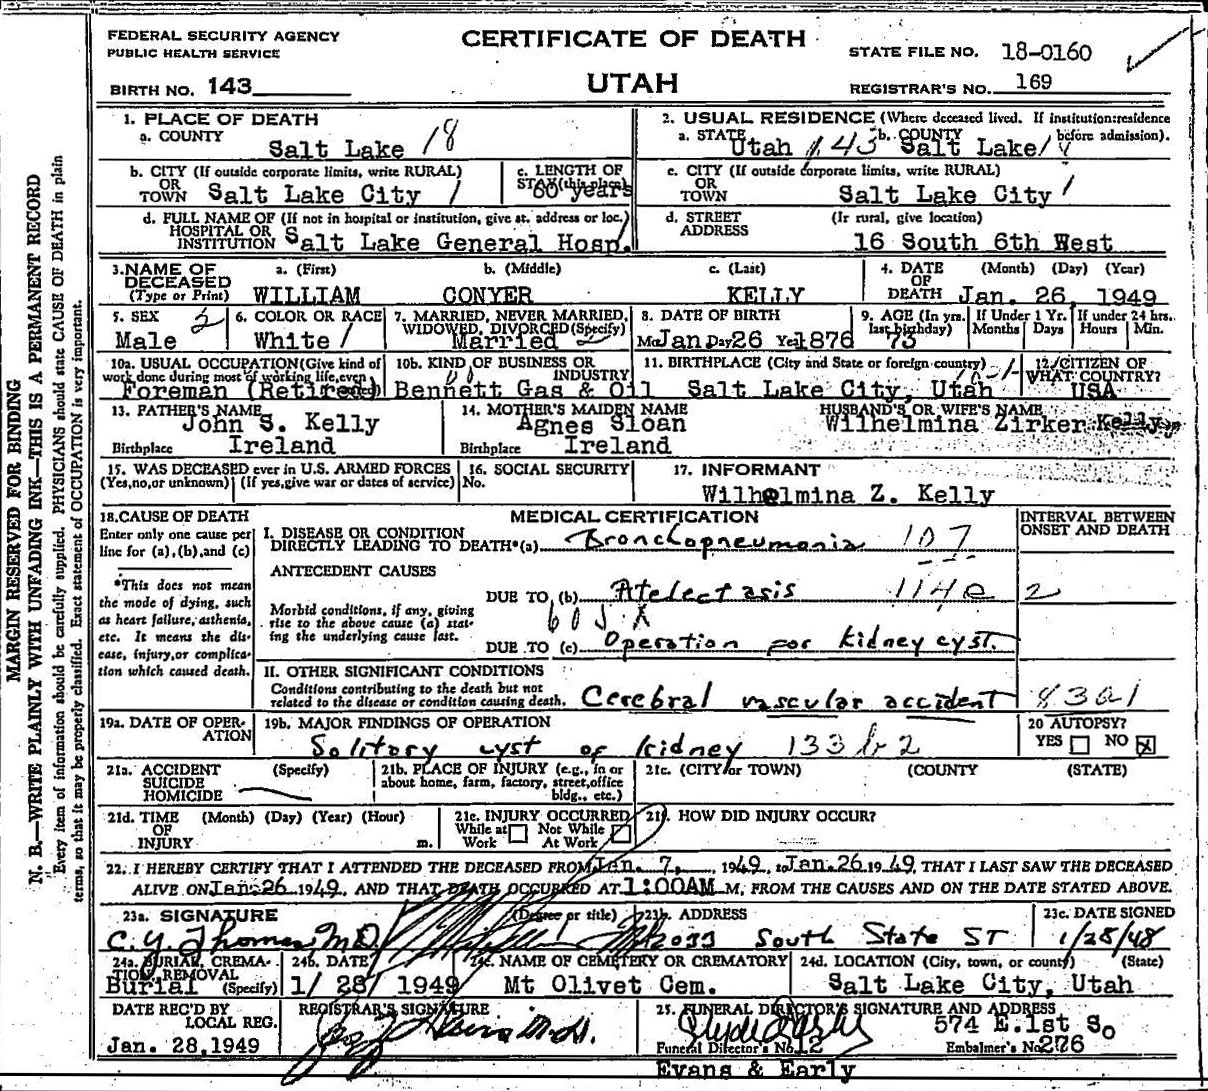 FEDERAL SECURITY AGENCY
PUBLIC HEALTH SERVICE
CERTIFICATE OF DEATH
STATE FILE NO. 18-0160
BIRTH NO. 143
UTAH
REGISTRAR'S NO. 169
MARGIN RESERVED FOR BINDING
N. B.—WRITE PLAINLY WITH UNFADING INK—THIS IS A PERMANENT RECORD
Every item of information should be carefully supplied. PHYSICIANS should state CAUSE OF DEATH in plain
terms, so that it may be properly classified. Exact statement of OCCUPATION is very important.
1. PLACE OF DEATH
a. COUNTY
Salt Lake 18
2. USUAL RESIDENCE (Where deceased lived. If institution:residence
before admission).
a. STATE Utah 143 b. COUNTY Salt Lake
b. CITY (If outside corporate limits, write RURAL)
OR
TOWN Salt Lake City 1
c. LENGTH OF
STAY (this place)
60 years
c. CITY (If outside corporate limits, write RURAL)
OR
TOWN Salt Lake City 1
d. FULL NAME OF (If not in hospital or institution, give st. address or loc.)
HOSPITAL OR
INSTITUTION Salt Lake General Hosp.
d. STREET (Ir rural, give location)
ADDRESS 16 South 6th West
3. NAME OF
DECEASED
(Type or Print)
a. (First) b. (Middle) c. (Last)
WILLIAM CONYER KELLY
4. DATE (Month) (Day) (Year)
OF
DEATH Jan. 26, 1949
5. SEX 2
Male
6. COLOR OR RACE
White 1
7. MARRIED, NEVER MARRIED,
WIDOWED, DIVORCED (Specify)
Married 2
8. DATE OF BIRTH
Mo Jan Day 26 Year 1876
9. AGE (In yrs. last birthday)
73
If Under 1 Yr.
Months Days
If under 24 hrs.
Hours Min.
10a. USUAL OCCUPATION (Give kind of
work done during most of working life, even
if retired)
Foreman (Retired)
10b. KIND OF BUSINESS OR
INDUSTRY
Bennett Gas & Oil
11. BIRTHPLACE (City and State or foreign country)
Salt Lake City, Utah
12. CITIZEN OF
WHAT COUNTRY?
USA
13. FATHER'S NAME
John S. Kelly
Birthplace Ireland
14. MOTHER'S MAIDEN NAME
Agnes Sloan
Birthplace Ireland
HUSBAND'S OR WIFE'S NAME
Wilhelmina Zirker Kelly
15. WAS DECEASED ever in U.S. ARMED FORCES
(Yes, no, or unknown) (If yes, give war or dates of service)
16. SOCIAL SECURITY
No.
17. INFORMANT
Wilhelmina Z. Kelly
18. CAUSE OF DEATH
Enter only one cause per
line for (a), (b), and (c)
*This does not mean
the mode of dying, such
as heart failure, asthenia,
etc. It means the dis-
ease, injury, or complica-
tion which caused death.
MEDICAL CERTIFICATION
INTERVAL BETWEEN
ONSET AND DEATH
I. DISEASE OR CONDITION
DIRECTLY LEADING TO DEATH*(a) Bronchopneumonia 107
ANTECEDENT CAUSES
DUE TO (b) Atelectasis 114e 2
Morbid conditions, if any, giving
rise to the above cause (a) stat-
ing the underlying cause last.
DUE TO (c) Operation for kidney cyst.
II. OTHER SIGNIFICANT CONDITIONS
Conditions contributing to the death but not
related to the disease or condition causing death.
Cerebral vascular accident 83a1
19a. DATE OF OPER-
ATION
19b. MAJOR FINDINGS OF OPERATION
Solitary cyst of kidney 133
20 AUTOPSY?
YES NO
21a. ACCIDENT (Specify)
SUICIDE
HOMICIDE
21b. PLACE OF INJURY (e.g., in or
about home, farm, factory, street, office
bldg., etc.)
21c. (CITY or TOWN) (COUNTY) (STATE)
21d. TIME (Month) (Day) (Year) (Hour)
OF
INJURY m.
21e. INJURY OCCURRED
While at Work Not While At Work
21f. HOW DID INJURY OCCUR?
22. I HEREBY CERTIFY THAT I ATTENDED THE DECEASED FROM Jan. 7, 1949, to Jan. 26 1949, THAT I LAST SAW THE DECEASED
ALIVE ON Jan. 26 1949, AND THAT DEATH OCCURRED AT 1:00AM M, FROM THE CAUSES AND ON THE DATE STATED ABOVE.
23a. SIGNATURE (Degree or title)
C. Y. Thomas M.D.
23b. ADDRESS
2033 South State ST
23c. DATE SIGNED
1/28/48
24a. BURIAL, CREMA-
TION, REMOVAL
Burial (Specify)
24b. DATE
1/ 28/ 1949
24c. NAME OF CEMETERY OR CREMATORY
Mt Olivet Cem.
24d. LOCATION (City, town, or county) (State)
Salt Lake City, Utah
DATE REC'D BY
LOCAL REG.
Jan. 28, 1949
REGISTRAR'S SIGNATURE
25. FUNERAL DIRECTOR'S SIGNATURE AND ADDRESS
574 E. 1st So
Funeral Director's No. 12
Embalmer's No. 276
Evans & Early